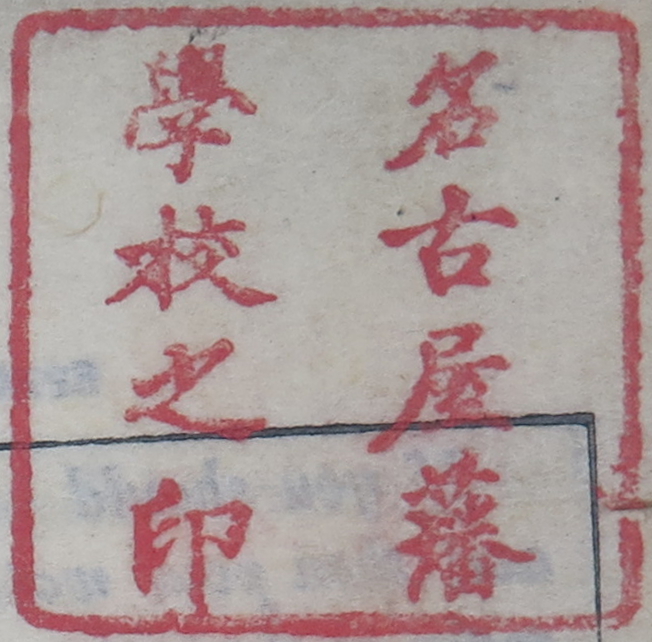 名古屋藩
學校之印